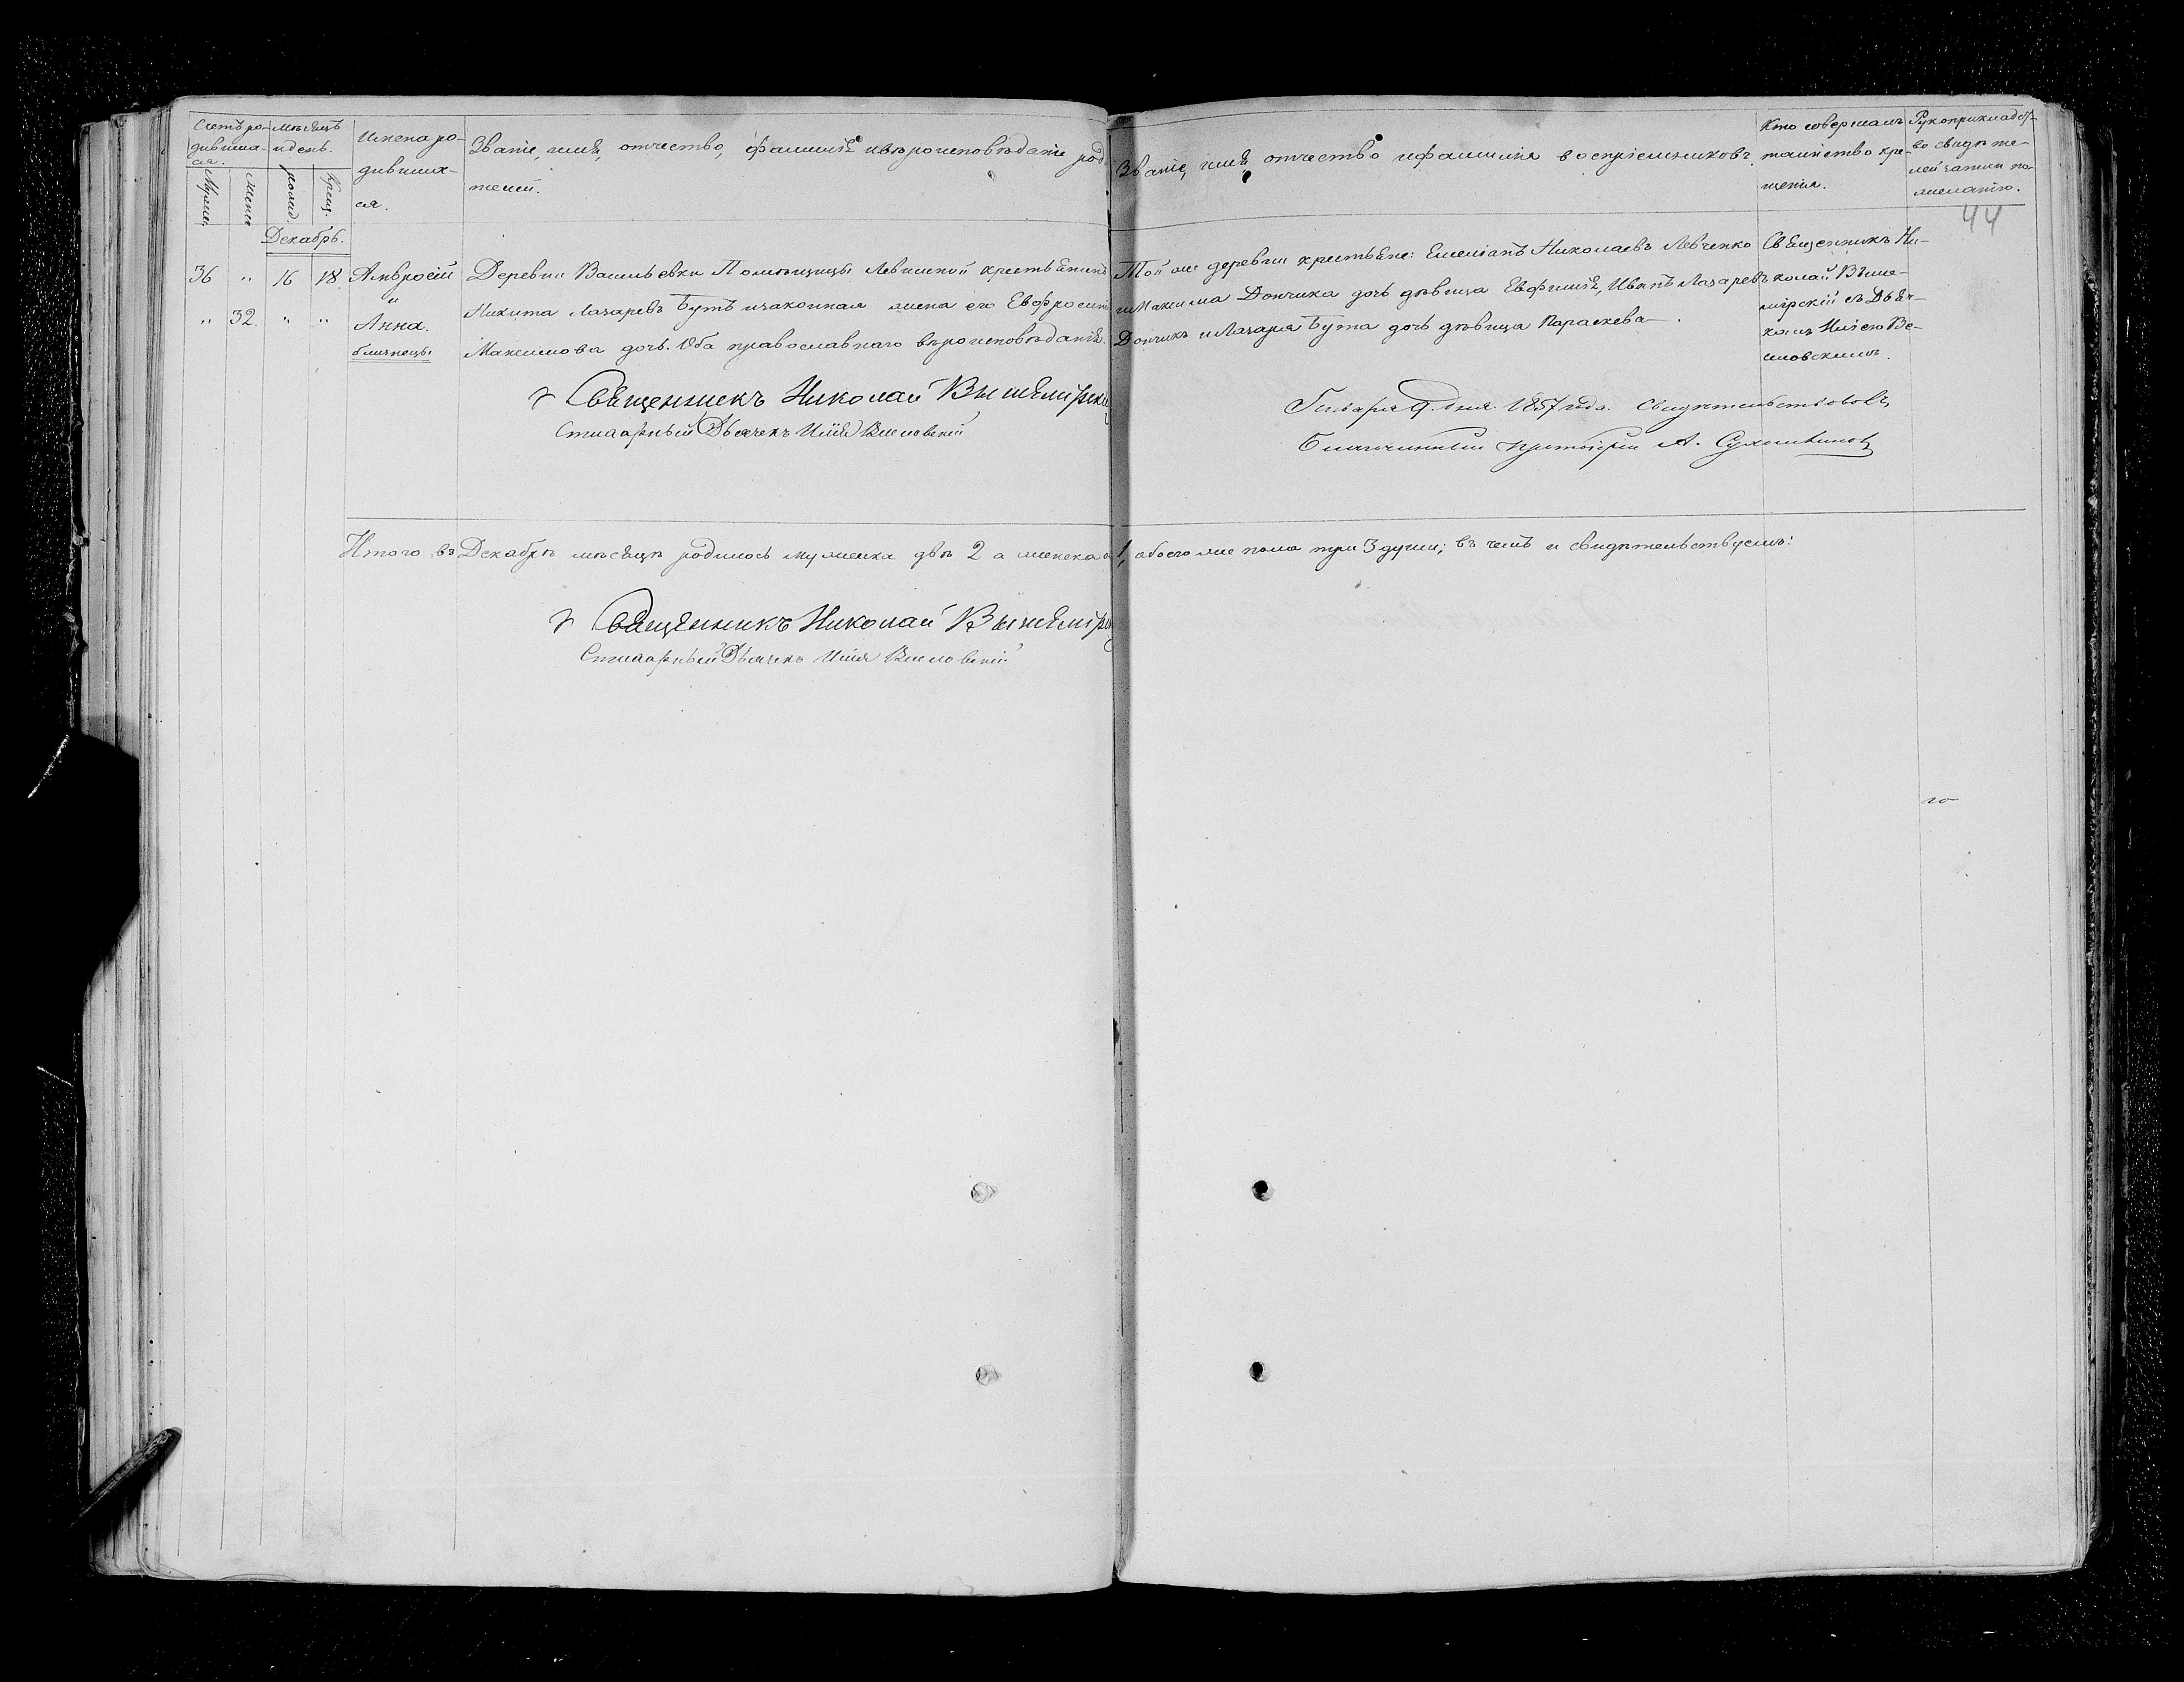 Счетъ ро-
дивших-
ся.
Мѣсяцъ
и день.
Мужес.
Женс.
рожд.
Крещ.
Имена ро-
дивших-
ся.
Званіе, имя, отчество, фамилія и вѣроисповѣданіе род
телей.
Званіе, имя, отчество и фамилія воспріемниковъ.
Кто совершалъ
таинство кре-
щенія.
Рукоприкладст-
во свидѣте-
лей записи по
желанію.
44
Декабрь.
36 " 16 18. Амвросій
"
" 32. " " Анна.
близнецы
Деревни Васильевки Помѣщицы Левшиной крестьянинъ
Никита Лазаревъ Бутъ и законная жена его Евфросинія
Максимова дочь. Оба православнаго вѣроисповѣданія.
Той же деревни крестьяне: Емеліанъ Николаевъ Левченко
и Максима Дончика дочь дѣвица Евфимія, Иванъ Лазаревъ
Дончикъ и Лазаря Бута дочь дѣвица Параскева.
Священникъ Ни-
колай Выше-
мірскій съ Дьяч-
комъ Иліею Ве-
словскимъ.
Священникъ Николай Вышемірскі
Дьячекъ Илія Весловскій
Генваря 9. дня 1857 года. Свидѣтельствовалъ
Благочинный протоіерей А. Сухомлиновъ
Итого въ Декабрѣ мѣсяцѣ родилось мужеска двѣ 2 а женска 1, обоего же пола три 3 души; въ чемъ и свидѣтельствуемъ:
Священникъ Николай Вышемір
Дьячекъ Илія Весловскій